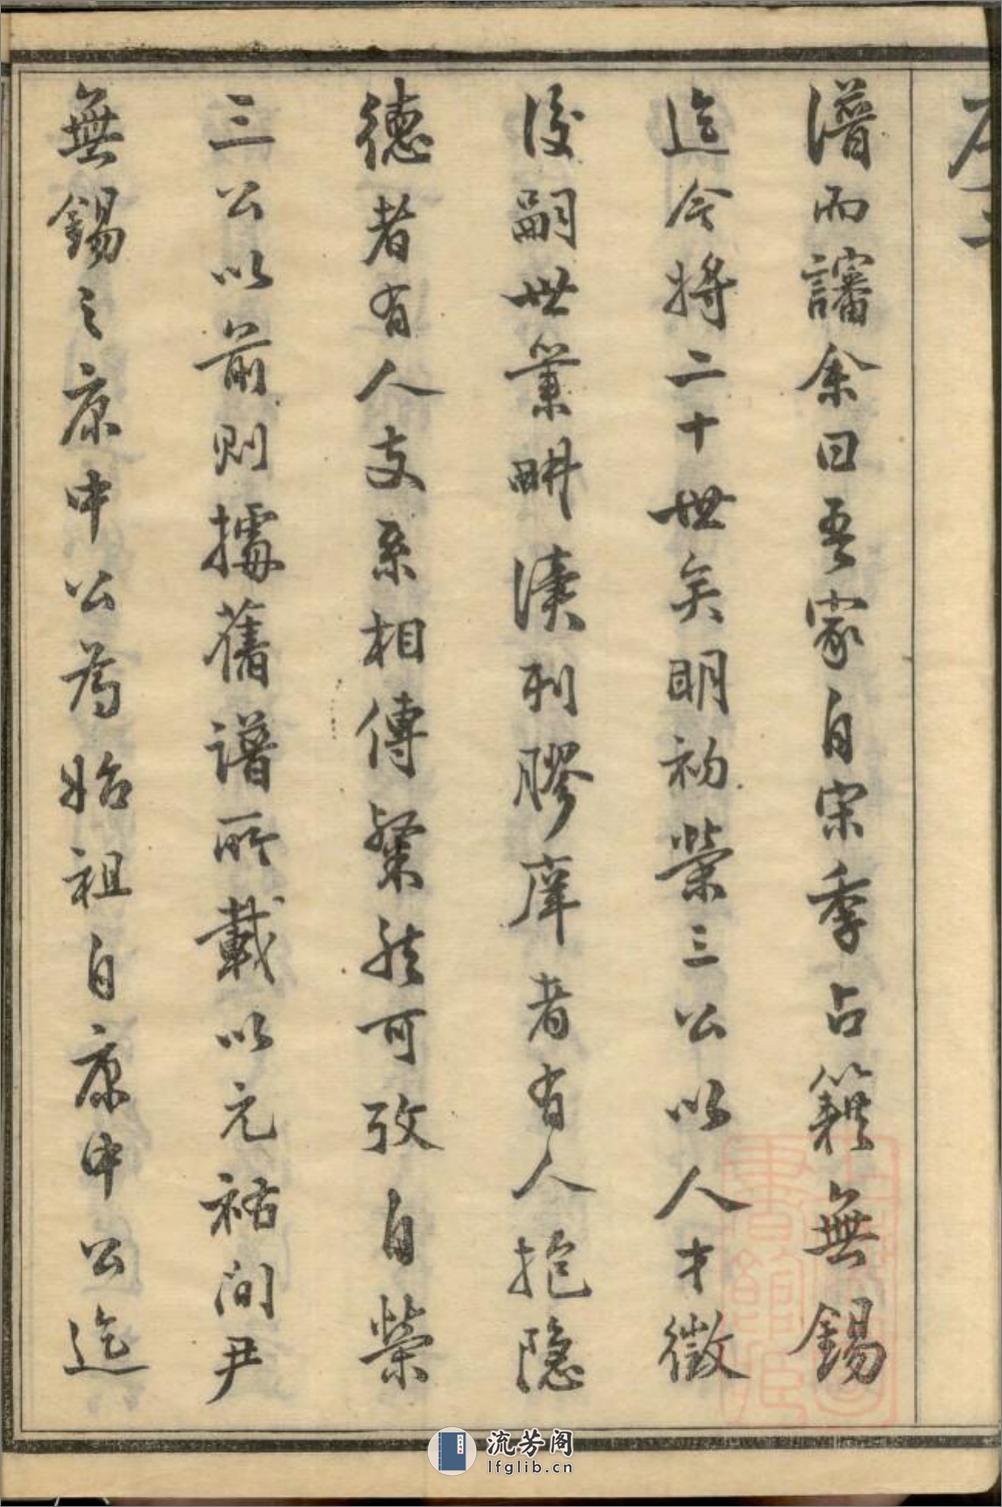 譜而讅余曰吾家自宋季占籍無錫
迄今將二十世矣明初榮三公以人才徵
後嗣世業畊讀列膠庠者有人抱隐
德者有人支系相傳粲然可攷自榮
三公以前則據舊譜所載以元祐间尹
無錫之康中公為始祖自康中公迄
流芳阁
lfglib.cn